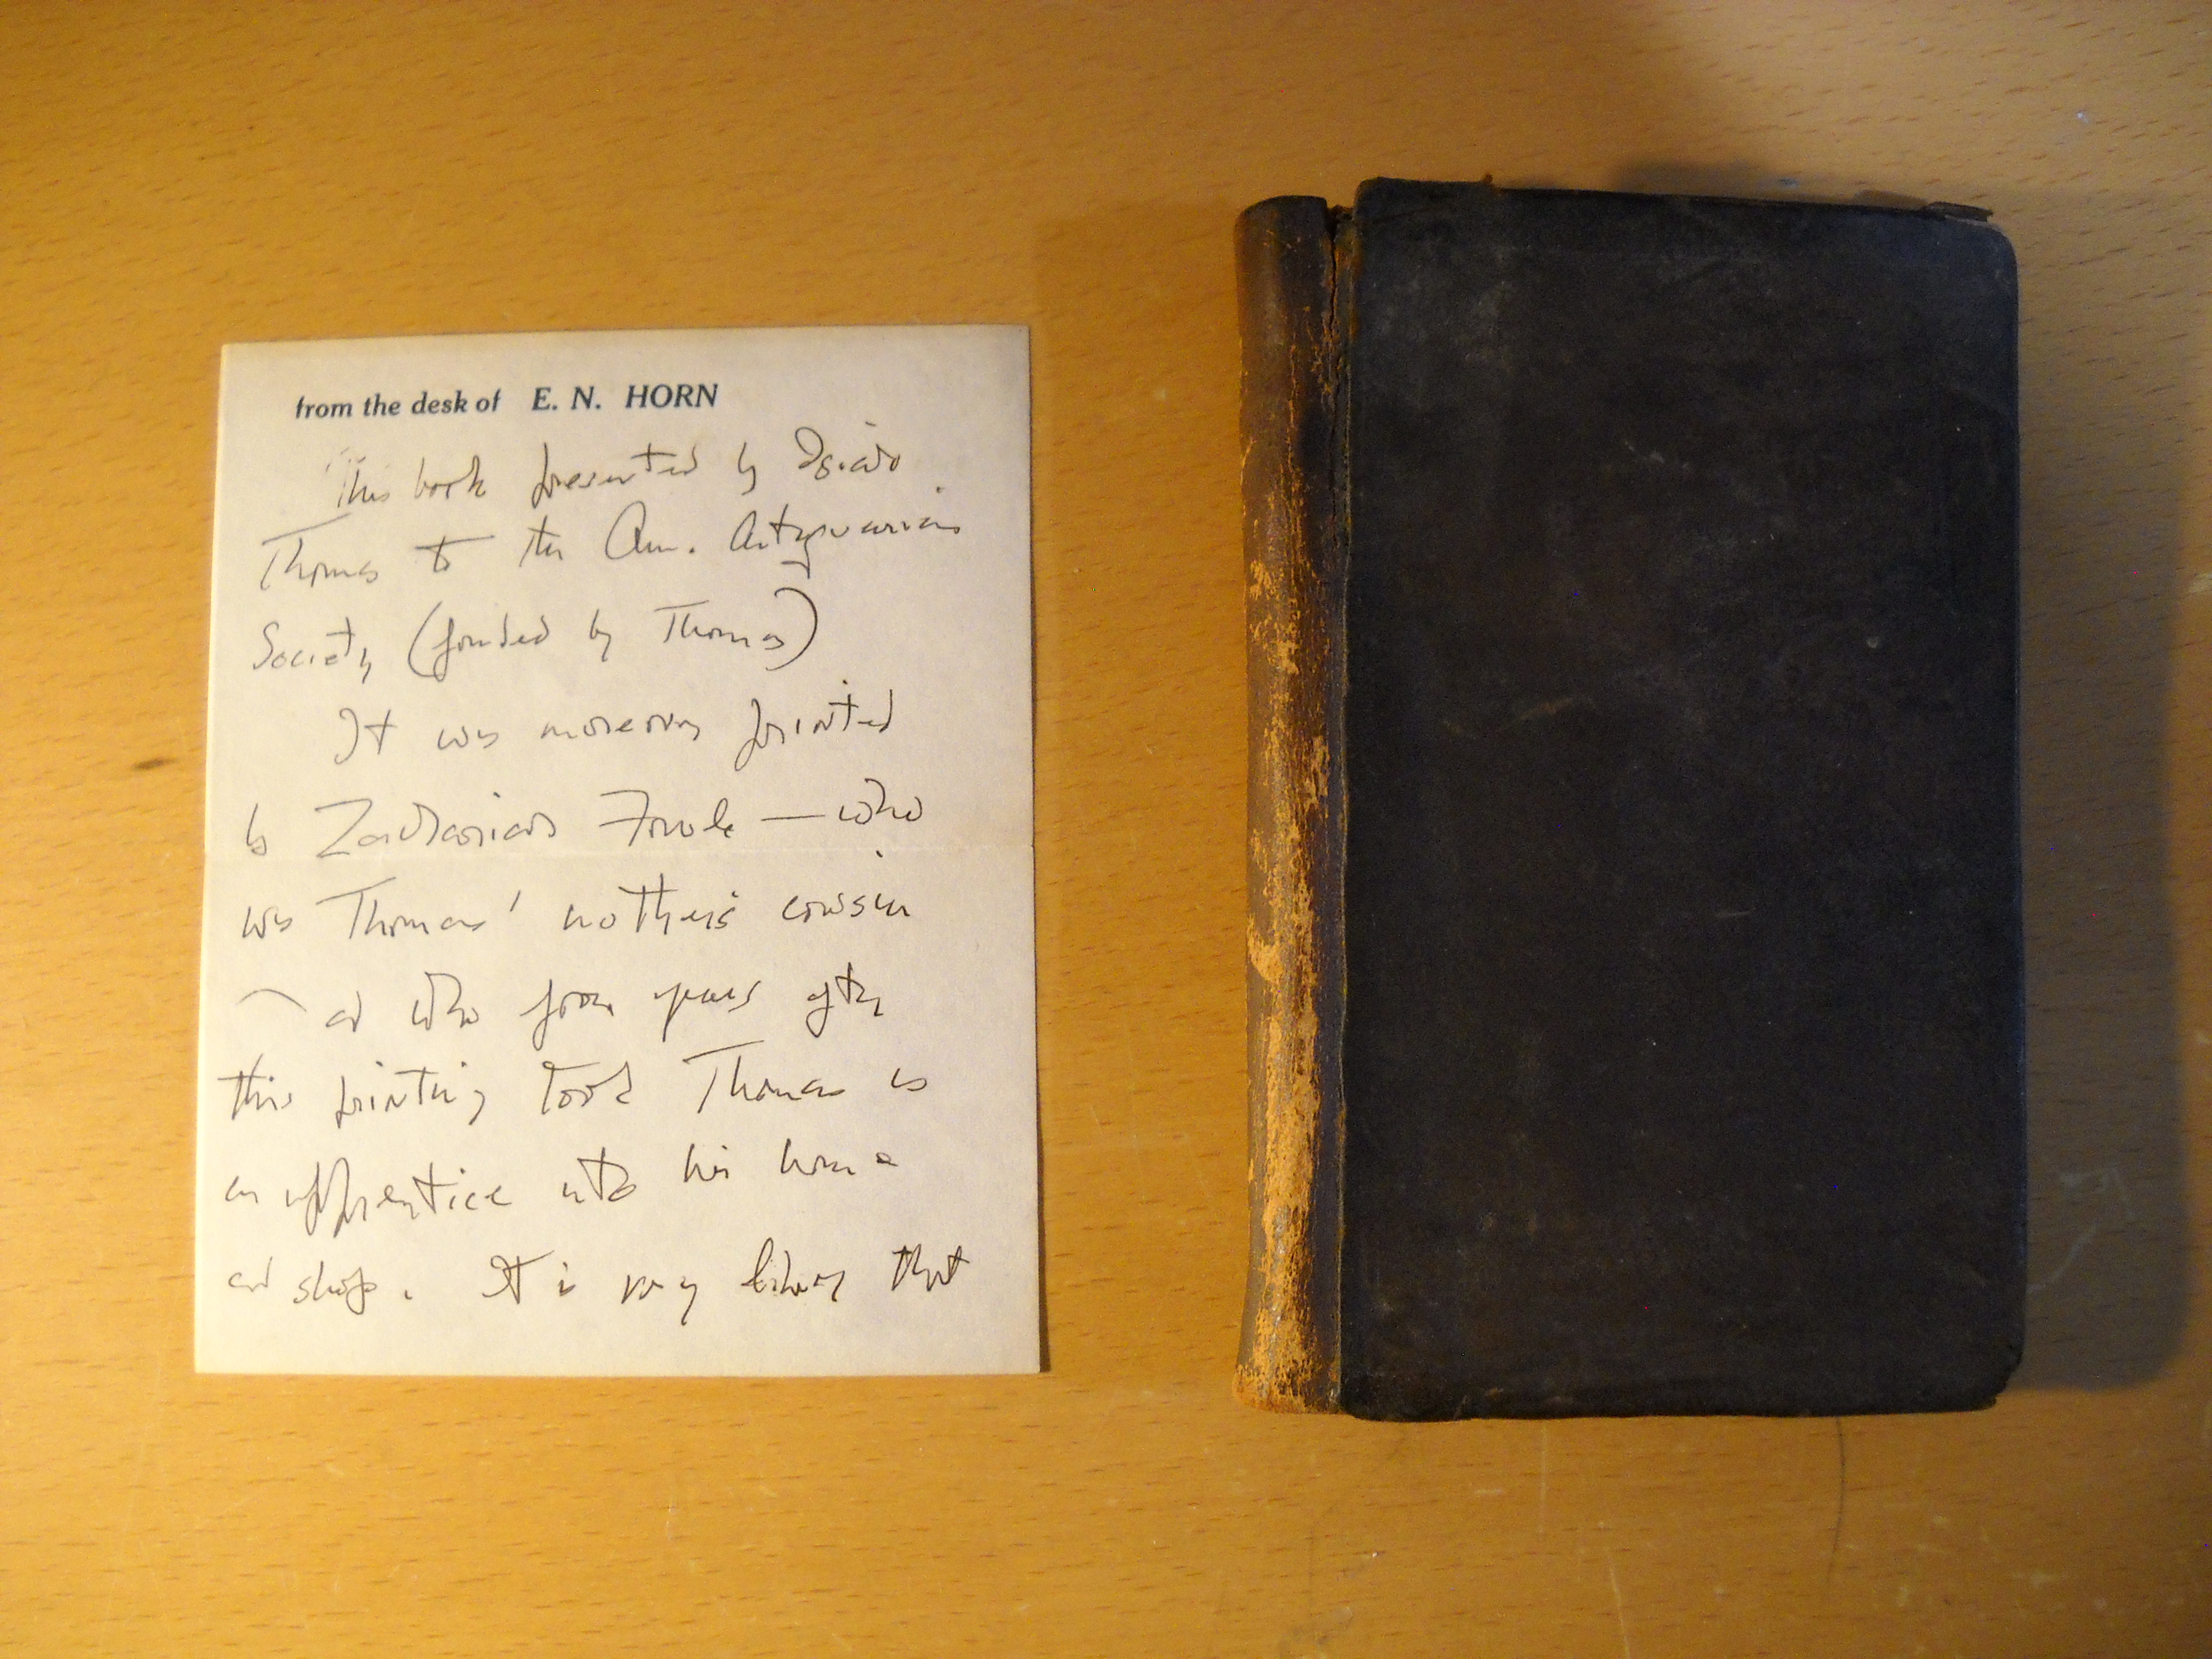 from the desk of E. N. HORN
This book presented by Isiah
Thomas to the Am. Antiquarian
Society (founded by Thomas)
It was moreover printed
by Zachariah Fowle — who
was Thomas' mother's cousin
— and who four years after
this printing took Thomas as
an apprentice into his home
and shop. It is very likely that